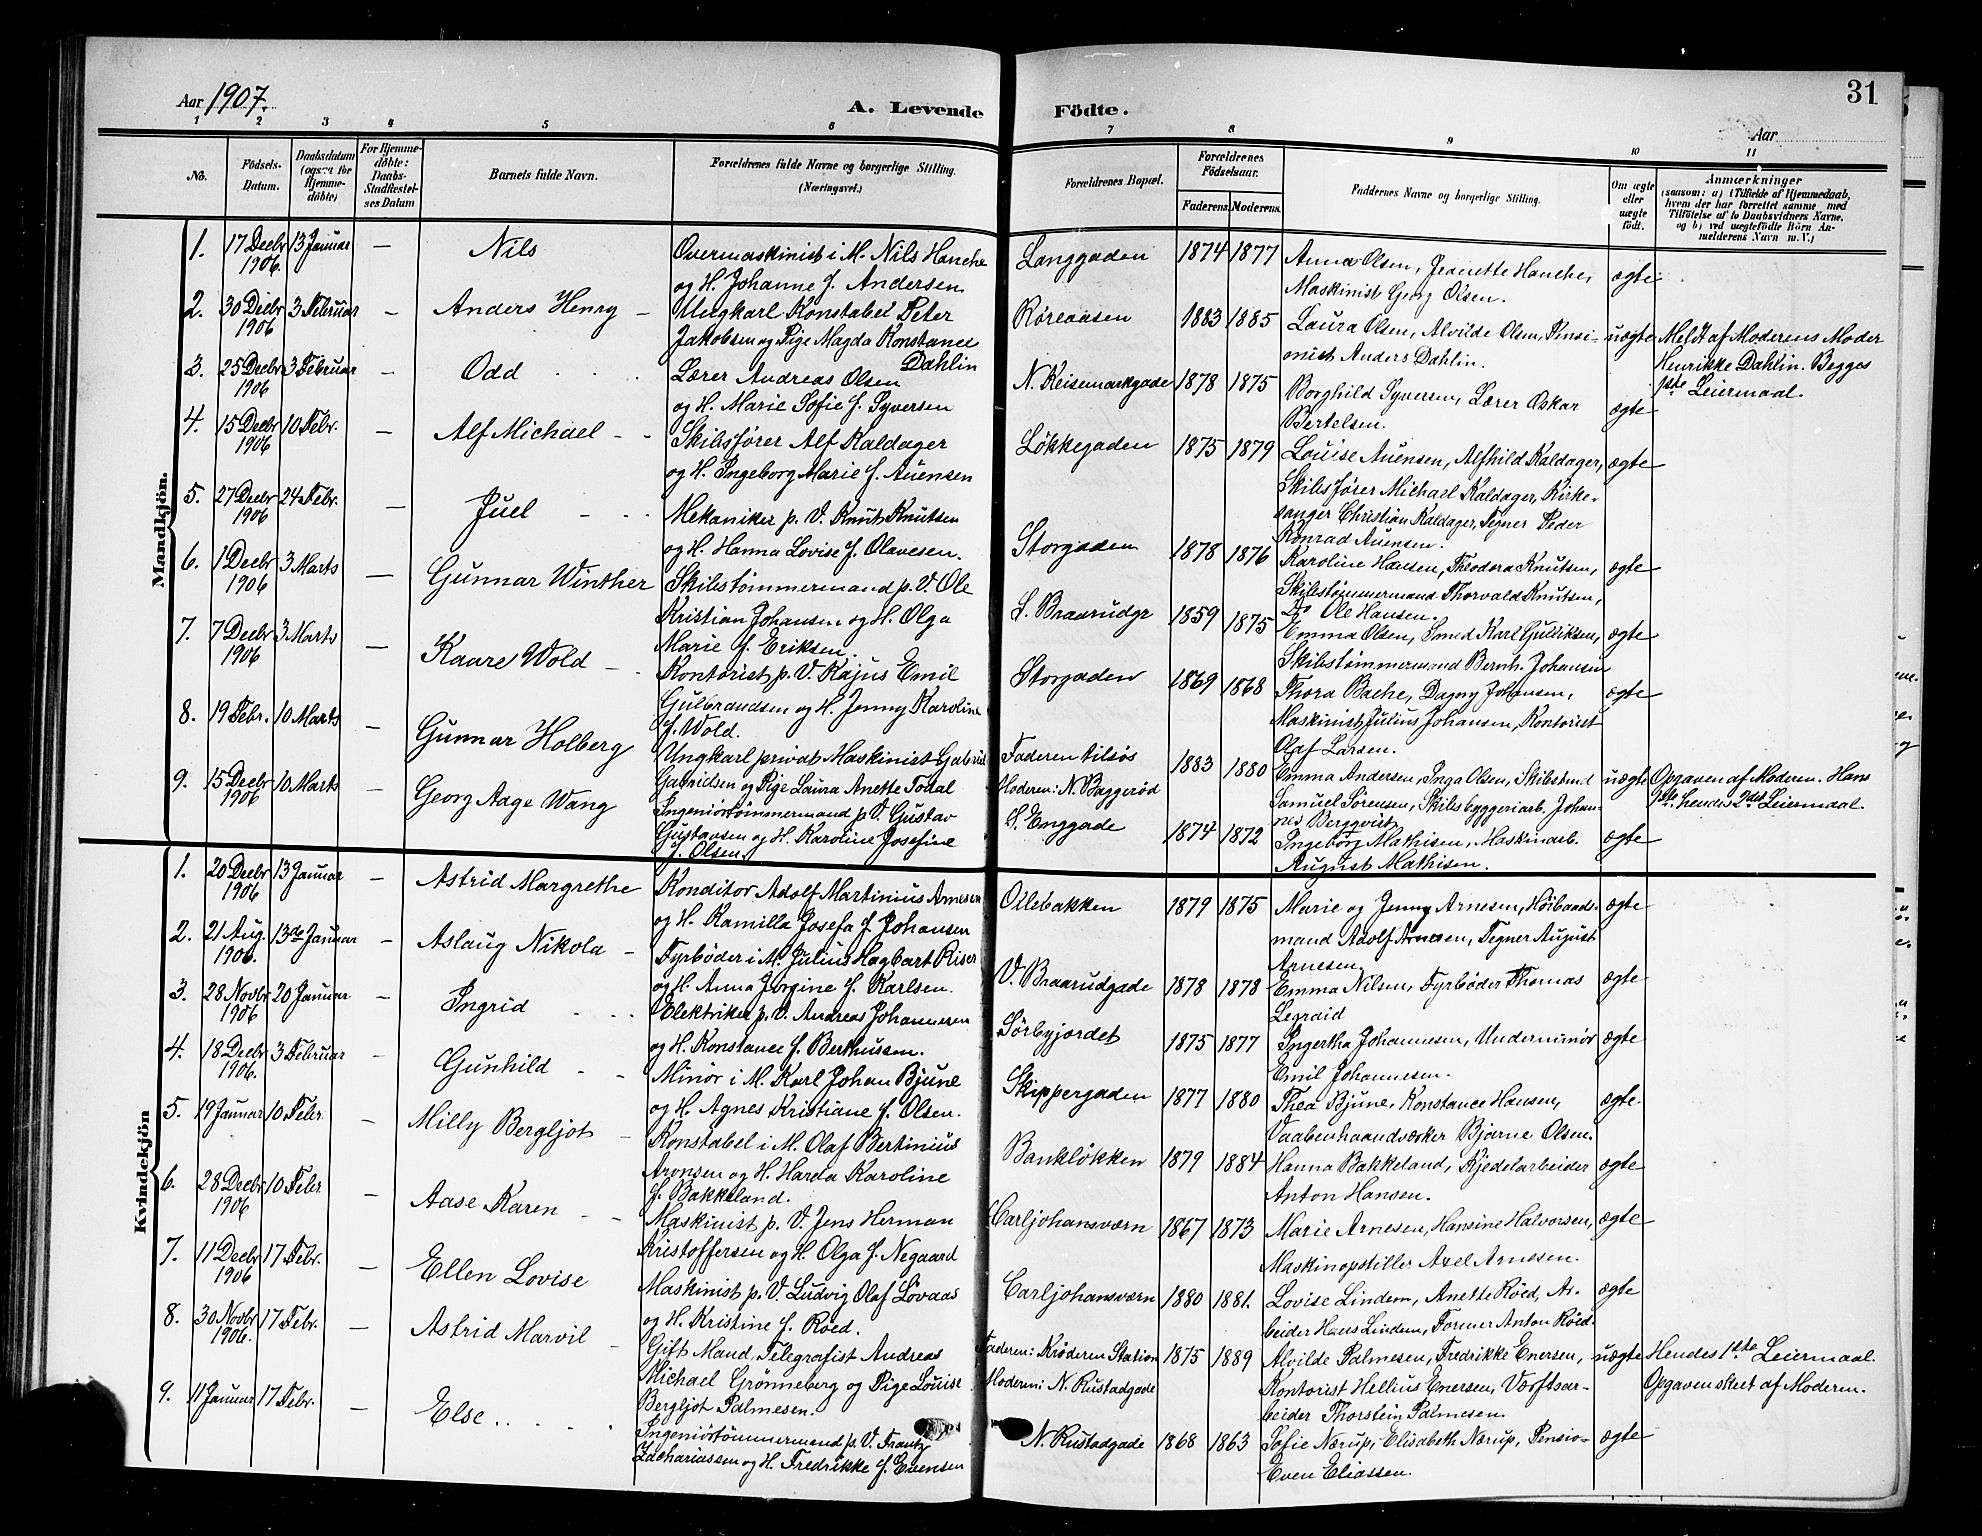 Aar 1907.
A. Levende Födte.
31
Aar
1 2 3 4 5 6 7 8 9 10 11
No.
Födsels-Datum.
Daabsdatum (ogsaa for Hjemme-döbte)
For Hjemme-döbte: Daabs-Stadfæstel-ses Datum
Barnets fulde Navn.
Forældrenes fulde Navne og borgerlige Stilling. (Næringsvei.)
Forældrenes Bopæl.
Forældrenes Födselsaar.
Faderens. Moderens.
Faddernes Navne og borgerlige Stilling.
Om ægte eller uægte födt.
Anmærkninger
(saasom: a) i Tilfælde af Hjemmedaab, hvem der har forrettet samme, med Tilföielse af to Daabsvidners Navne, og b) ved uægtefödte Börn An-melderens Navn m. V.)
Mandkjön.
1. 17 Decbr 1906 13 Januar — Nils
Overmaskinist i M. Nils Hanche
og H. Johanne f. Andersen
Langgaden 1874 1877
Anna Olsen, Jeanette Hanche,
Maskinist Georg Olsen.
ægte
2. 30 Decbr 1906 3 Februar — Anders Henry —
Ungkarl Konstabel Peter
Jakobsen og Pige Magda Konstance
Dahlin
Røreaasen 1883 1885
Laura Olsen, Alvilde Olsen, Pensi-
onist Anders Dahlin.
uægte
Meldt af Moderens Moder
Henrikke Dahlin. Begges
1ste Leiermaal.
3. 25 Decbr 1906 3 Februar — Odd
Lærer Andreas Olsen
og H. Marie Sofie f. Syversen
N. Keisemarkgade 1878 1875
Borghild Syversen, Lærer Oskar
Bertelsen.
ægte
4. 15 Decbr 1906 10 Febr. — Alf Michael
Skibsfører Alf Kaldager
og H. Ingeborg Marie f. Auensen
Løkkegaden 1875 1879
Louise Auensen, Alfhild Kaldager,
Skibsfører Michael Kaldager, Kirke-
sanger Christian Kaldager, Tegner Peder
Konrad Auensen.
ægte
5. 27 Decbr 1906 24 Febr. — Juel
Mekaniker p. V. Knut Knutsen
og H. Hanna Lovise f. Olavesen.
Storgaden 1878 1876
Karoline Hansen, Theodora Knutsen,
Skibstømmermand Thorvald Knutsen,
Do Ole Hansen.
ægte
6. 1 Decbr 1906 3 Marts — Gunnar Winther
Skibstømmermand p. V. Ole
Kristian Johansen og H. Olga
Marie f. Eriksen.
S. Braarudgt 1859 1875
Emma Olsen, Smed Karl Gulliksen,
Skibstømmermand Bernh. Johansen
ægte
7. 7 Decbr 1906 3 Marts — Kaare Wold
Kontorist p. V. Kajus Emil
Gulbrandsen og H. Jenny Karoline
f. Wold.
Storgaden 1869 1868
Thora Bache, Dagny Johansen,
Maskinist Julius Johansen, Kontorist
Olaf Larsen.
ægte
8. 19 Febr. 10 Marts — Gunnar Holberg
Ungkarl privat Maskinist Gabriel
Gabrielsen og Pige Laura Anette Todal
Faderen tilsøs
Moderen: N. Baggerød
1883 1880
Emma Andersen, Inga Olsen, Skibstmd
Samuel Sørensen, Skibsbyggeriarb. Johan-
nes Bergqvist
uægte
Opgaven af Moderen. Hans
1ste hendes 2det Leiermaal.
9. 15 Decbr 1906 10 Marts — Georg Aage Wang
Ingeniørtømmermand p. V. Gustav
Gustavsen og H. Karoline Josefine
f. Olsen
S. Enggade 1874 1872
Ingeborg Mathisen, Maskinarb.
August Mathisen.
ægte
Kvindekjön
1. 20 Decbr 1906 13 Januar — Astrid Margrethe
Konditor Adolf Martinius Arnesen
og H. Kamilla Josefa f. Johansen
Ollebakken 1879 1875
Marie og Jenny Arnesen, Høibaads-
mand Adolf Arnesen, Tegner August
Arnesen
ægte
2. 21 Aug. 1906. 13de Januar — Aslaug Nikola —
Fyrbøder i M. Julius Hagbart Riser
og H. Anna Jorgine f. Karlsen.
V. Braarudgade 1878 1878
Emma Nilsen, Fyrbøder Thomas
Legraid
ægte
3. 28 Novbr 1906 20 Januar — Ingrid
Elektriker p. V. Andreas Johannesen
og H. Konstance f. Berthussen.
Sørbyjordet 1875 1877
Ingertha Johannesen, Underminør
Emil Johannesen.
ægte
4. 18 Decbr 1906. 3 Februar — Gunhild
Minør i M. Karl Johan Bjune
og H. Agnes Kristiane f. Olsen.
Skippergaden 1877 1880
Thea Bjune, Konstance Hansen,
Vaabenhaandværker Bjarne Olsen.
ægte
5. 19 Januar 10 Febr — Milly Bergljot —
Konstabel i M. Olaf Bertinius
Aronsen og H. Harda Karoline
f. Bakkeland.
Bankløkken 1879 1884
Hanna Bakkeland, Kjedelarbeider
Anton Hansen.
ægte
6. 28 Decbr 1906 10 Febr — Aase Karen
Maskinist p. V. Jens Herman
Kristoffersen og H. Olga f. Negaard
Carljohansværn 1867 1873
Marie Arnesen, Hansine Halvorsen,
Maskinopstiller Axel Arnesen.
ægte
7. 11 Decbr 1906 17 Febr. — Ellen Lovise
Maskinist p. V. Ludvig Olaf Løvaas
og H. Kristine f. Røed.
Carljohansværn 1880 1881.
Lovise Lindem, Anette Røed, Ar-
beider Hans Lindem, Former Anton Røed.
ægte
8. 30 Novbr 1906. 17 Febr. — Astrid Marvil —
Gift Mand, Telegrafist Andreas
Michael Grønneberg og Pige Louise
Bergljot Palmesen.
Faderen: Krøderen Station
Moderen: N. Rustadgade
1875 1889
Alvilde Palmesen, Fredrikke Enersen,
Kontorist Hellius Enersen, Værftsar-
beider Thorstein Palmesen.
uægte
Hendes 1ste Leiermaal.
Opgaven skeet af Moderen.
9. 11 Januar 17 Febr. — Else
Ingeniørtømmermand p. V. Frantz
Zachariassen og H. Fredrikke f. Evensen
N. Rustadgade 1868 1863
Sofie Nærup, Elisabeth Nærup, Pensio-
Even Eliassen.
ægte